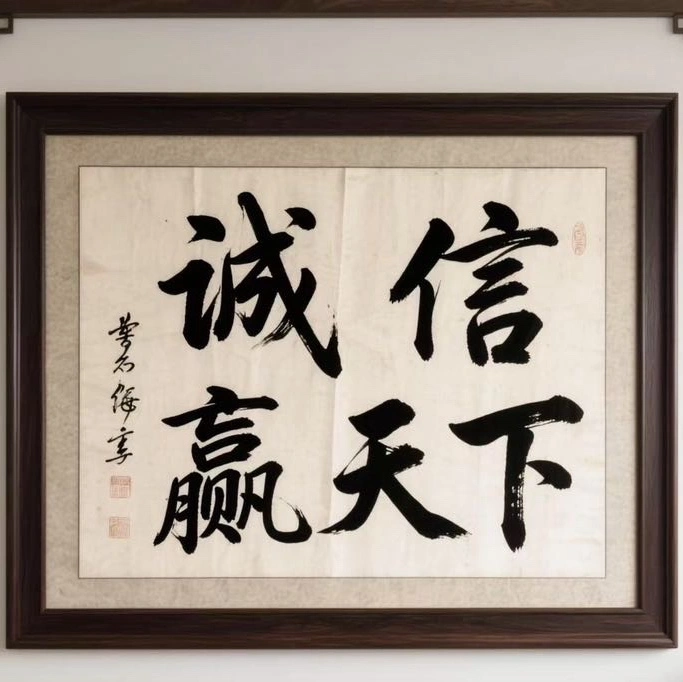 诚信
赢天下